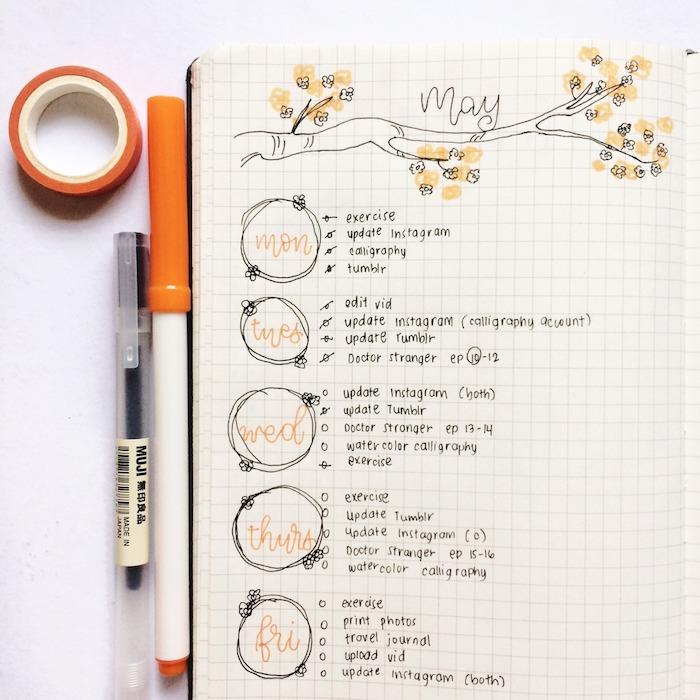 May
mon
exercise
update Instagram
calligraphy
tumblr
tues
edit vid
update Instagram (calligraphy account)
update Tumblr
Doctor stranger ep 10-12
wed
update Instagram (both)
update Tumblr
Doctor stranger ep 13-14
watercolor calligraphy
exercise
thurs
exercise
update Tumblr
update Instagram (o)
Doctor stranger ep 15-16
watercolor calligraphy
fri
exercise
print photos
travel journal
upload vid
update Instagram (both)
MUJI 無印良品
MADE IN
JAPAN